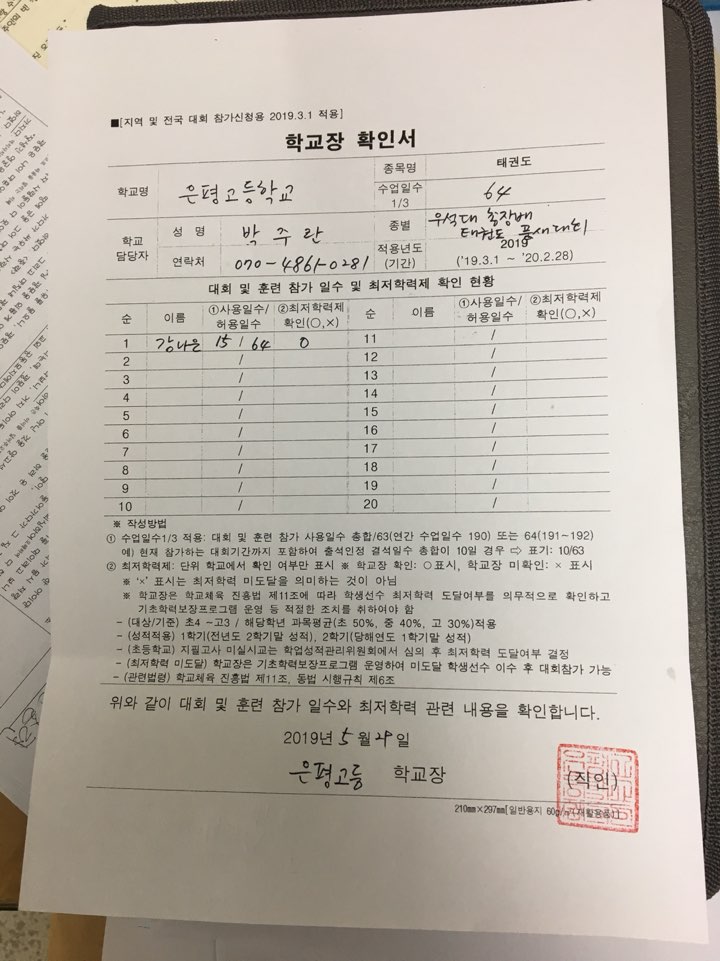 ■[지역 및 전국 대회 참가신청용 2019.3.1 적용]
학교장 확인서
학교명 은평고등학교 종목명 태권도
수업일수 1/3 64
학교 담당자 성 명 박주란 종별 우석대 총장배 태권도 품새대회
연락처 070-4861-0281 적용년도 (기간) 2019 ('19.3.1 ~ '20.2.28)
대회 및 훈련 참가 일수 및 최저학력제 확인 현황
순 이름 ①사용일수/허용일수 ②최저학력제 확인(○,×) 순 이름 ①사용일수/허용일수 ②최저학력제 확인(○,×)
1 강나은 15 / 64 0 11 /
2 / 12 /
3 / 13 /
4 / 14 /
5 / 15 /
6 / 16 /
7 / 17 /
8 / 18 /
9 / 19 /
10 / 20 /
※ 작성방법
① 수업일수1/3 적용: 대회 및 훈련 참가 사용일수 총합/63(연간 수업일수 190) 또는 64(191~192)
예) 현재 참가하는 대회기간까지 포함하여 출석인정 결석일수 총합이 10일 경우 ⇨ 표기: 10/63
② 최저학력제: 단위 학교에서 확인 여부만 표시 ※ 학교장 확인: ○표시, 학교장 미확인: × 표시
※ '×' 표시는 최저학력 미도달을 의미하는 것이 아님
※ 학교장은 학교체육 진흥법 제11조에 따라 학생선수 최저학력 도달여부를 의무적으로 확인하고
기초학력보장프로그램 운영 등 적절한 조치를 취하여야 함
- (대상/기준) 초4 ~고3 / 해당학년 과목평균(초 50%, 중 40%, 고 30%)적용
- (성적적용) 1학기(전년도 2학기말 성적), 2학기(당해연도 1학기말 성적)
- (초등학교) 지필고사 미실시교는 학업성적관리위원회에서 심의 후 최저학력 도달여부 결정
- (최저학력 미도달) 학교장은 기초학력보장프로그램 운영하여 미도달 학생선수 이수 후 대회참가 가능
- (관련법령) 학교체육 진흥법 제11조, 동법 시행규칙 제6조
위와 같이 대회 및 훈련 참가 일수와 최저학력 관련 내용을 확인합니다.
2019년 5 월 29 일
은평고등 학교장 (직인)
210㎜×297㎜[일반용지 60g/㎡(재활용품)]